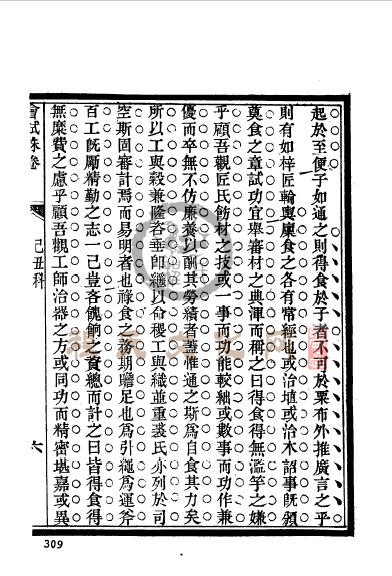 起於至便子如通之則得食於子者不可於粟布外推廣言之乎
則有如梓匠輪輿廩食之各有常經也或治埴或治木詔事既頒
奠食之章試功宜舉審材之典渾而稱之曰得食得無濫竽之嫌
乎顧吾觀匠氏飭材之技或一事而功能較絀或數事而功作兼
優而卒無不仿廉養以酬其勞績者蓋惟通之斯為自食其力矣
所以工與穀兼隆咨垂即繼以命稷工與織並重裘氏亦列於司
空斯固審計焉而易明者也祿食之務期贍足也為引繩為運斧
百工既厲精勤之志一己豈吝餼餉之資總而計之曰皆得食得
無糜費之慮乎顧吾觀工師治器之方或同功而精密堪嘉或異
會試硃卷
己丑科
六
309